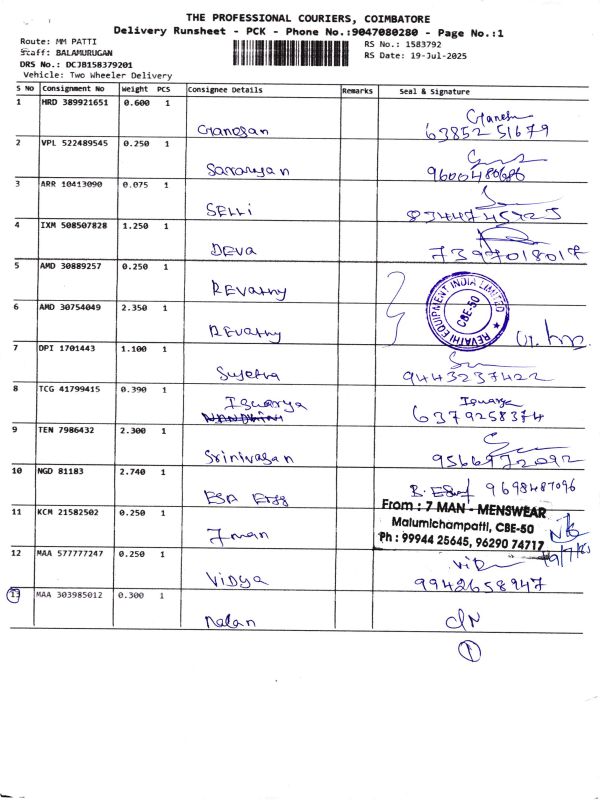 THE PROFESSIONAL COURIERS, COIMBATORE
Delivery Runsheet - PCK - Phone No.:9047080280 - Page No.:1
Route: MM PATTI
Staff: BALAMURUGAN
DRS No.: DCJB158379201
Vehicle: Two Wheeler Delivery
RS No.: 1583792
RS Date: 19-Jul-2025
S No Consignment No Weight PCS Consignee Details Remarks Seal & Signature
1 HRD 389921651 0.600 1 Ganesan Ganesh
63852 51679
2 VPL 522489545 0.250 1 Saravyan
9600480686
3 ARR 10413090 0.075 1 SELLi
4 IXM 508507828 1.250 1 DEVA
7397018017
5 AMD 30889257 0.250 1 REVathy
REVATHI EQUIPMENT INDIA LIMITED
CBE-50
6 AMD 30754049 2.350 1 REVathy
7 DPI 1701443 1.100 1 Sujetra
9443237422
8 TCG 41799415 0.390 1 Iswarya Iswarya
6379258374
9 TEN 7986432 2.300 1 Srinivasan
9566772092
10 NGD 81183 2.740 1 ESA 9698487096
11 KCM 21582502 0.250 1 7man
From : 7 MAN - MENSWEAR
Malumichampatti, CBE-50
Ph : 99944 25645, 96290 74717
19/7/25
12 MAA 577777247 0.250 1 Vidya
9942658947
13 MAA 303985012 0.300 1 Nalan
1